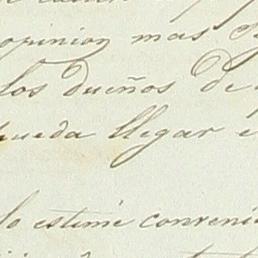 opinion mas
los dueños de
pueda llegar
lo estime conveni